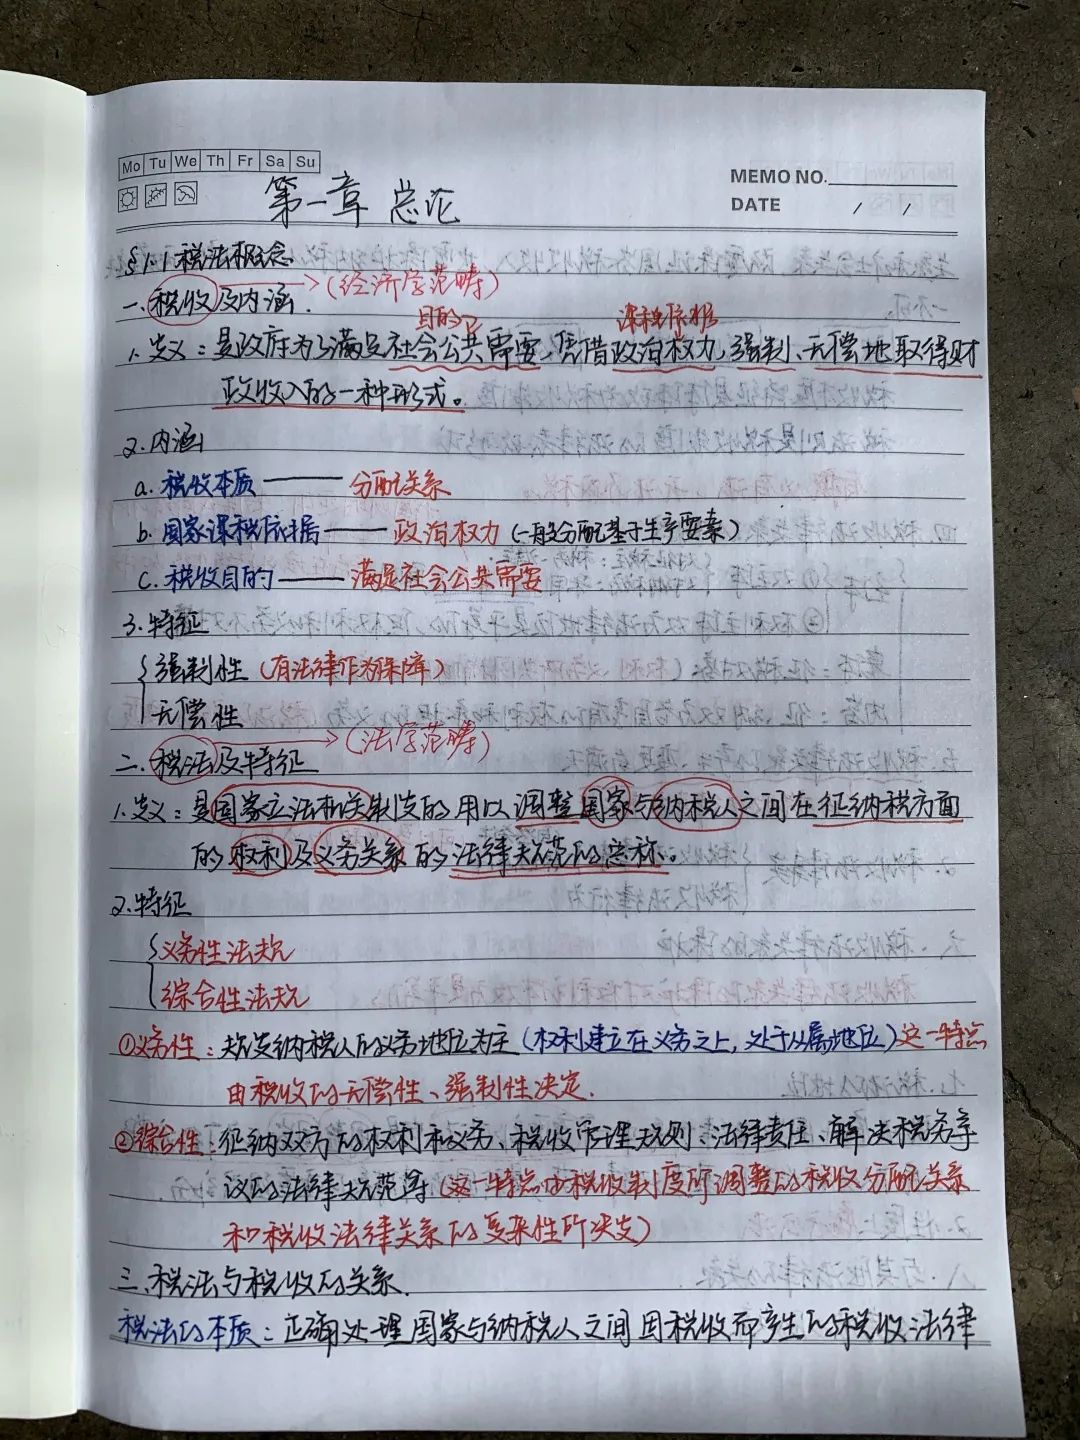 Mo Tu We Th Fr Sa Su
MEMO NO.
DATE / /
第一章 总论
§1.1 税法概念
一.税收及内涵. →(经济学范畴)
目的 课税依据
1.定义:是政府为了满足社会公共需要,凭借政治权力,强制、无偿地取得财
政收入的一种形式。
2.内涵
a.税收本质——分配关系
b.国家课税依据——政治权力(一般分配基于生产要素)
c.税收目的——满足社会公共需要
3.特征
强制性(有法律作为保障)
无偿性
二.税法及特征 →(法学范畴)
1.定义:是国家立法机关制定的用以调整国家与纳税人之间在征纳税方面
的权利及义务关系的法律规范的总称。
2.特征
义务性法规
综合性法规
①义务性:规定纳税人的义务地位为主(权利建立在义务之上,处于从属地位)这一特点
由税收的无偿性、强制性决定.
②综合性:征纳双方的权利和义务、税收管理规则、法律责任、解决税务争
议的法律规范等(这一特点由税收制度所调整的税收分配关系
和税收法律关系的复杂性所决定)
三.税法与税收的关系.
税法的本质:正确处理国家与纳税人之间因税收而产生的税收法律